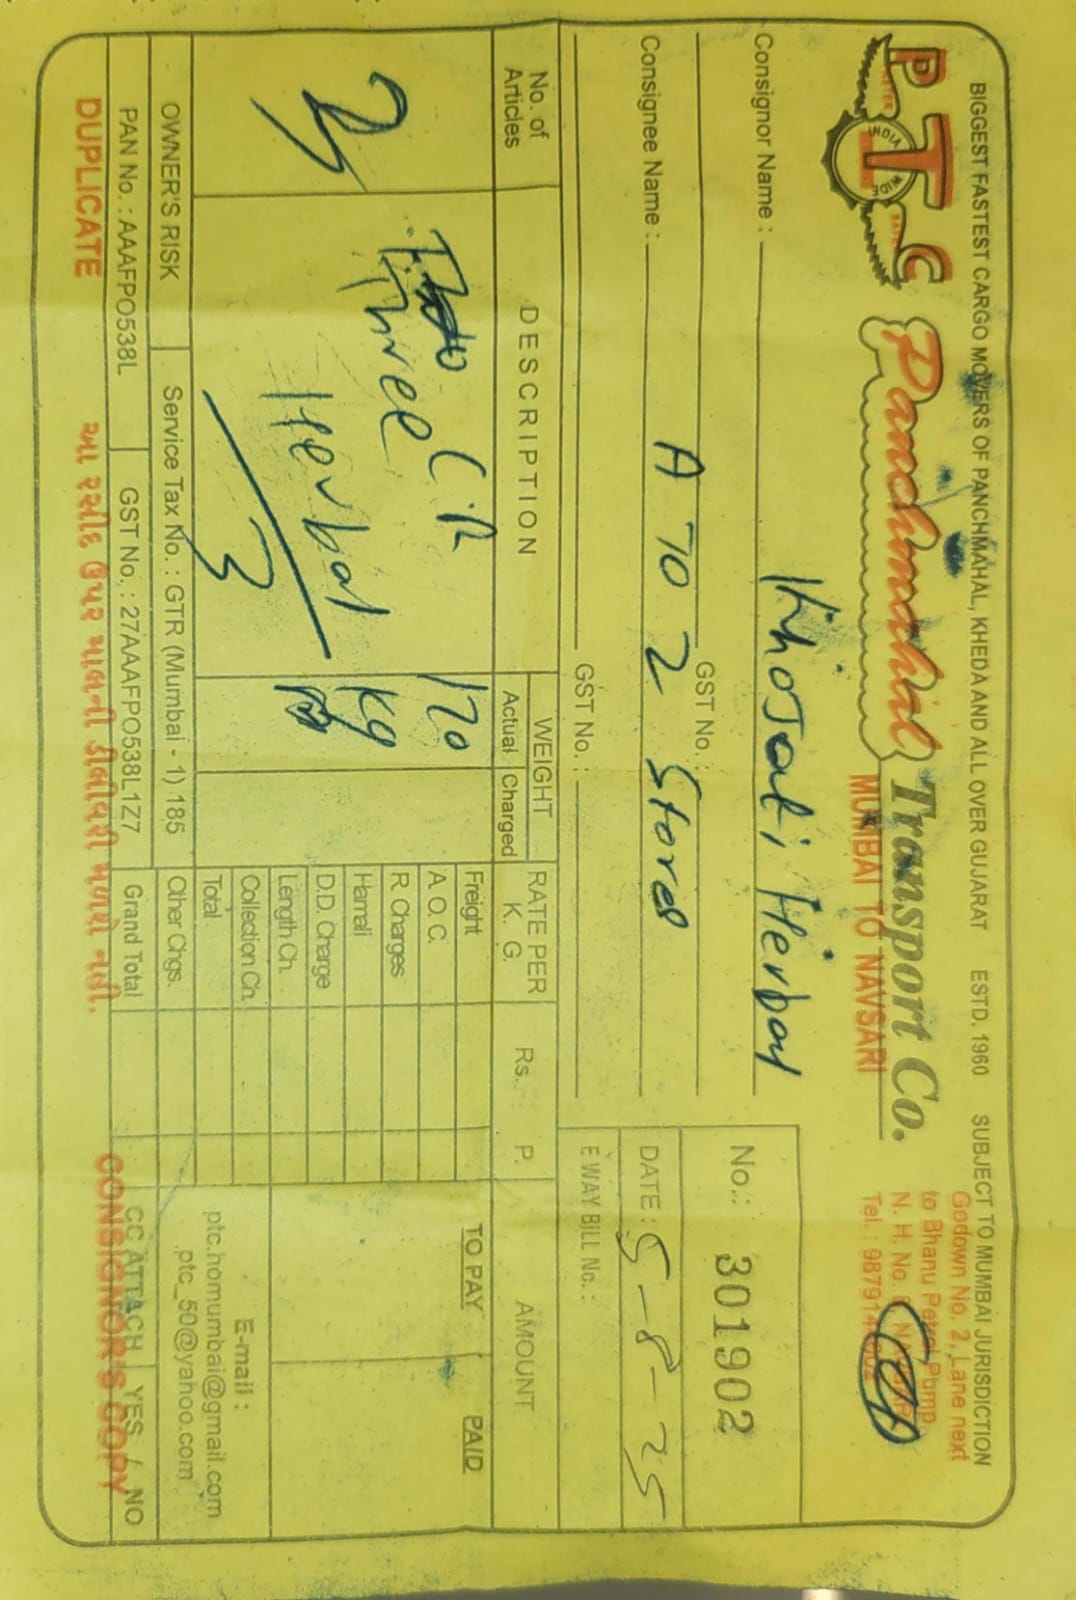 BIGGEST FASTEST CARGO MOVERS OF PANCHMAHAL, KHEDA AND ALL OVER GUJARAT ESTD. 1960 SUBJECT TO MUMBAI JURISDICTION
PTC
INDIA
Panchmahal Transport Co.
MUMBAI TO NAVSARI
Godown No. 2, Lane next
to Bhanu Petrol Pump,
N. H. No.
Tel. : 98791
No.: 301902
Consignor Name : Khojati Herbal
GST No. :
DATE : 5-8-25
Consignee Name : A TO Z Stores
GST No. :
E WAY BILL No. :
No. of Articles
DESCRIPTION
WEIGHT
Actual Charged
RATE PER K. G.
Rs. P.
AMOUNT
TO PAY PAID
3
Three C.R
Herbal
3
170
Kg
Freight
A. O. C.
R. Charges
Hamali
D.D. Charge
Length Ch.
Collection Ch.
Total
Other Chgs.
Grand Total
E-mail :
ptc.homumbai@gmail.com
ptc_50@yahoo.com
OWNER'S RISK
Service Tax No. : GTR (Mumbai - 1) 185
PAN No. : AAAFPO538L
GST No. : 27AAAFPO538L1Z7
CC ATTACH YES / NO
DUPLICATE
આ રસીદ ઉપર માલની ડીલીવરી મળશે નહી.
CONSIGNOR'S COPY